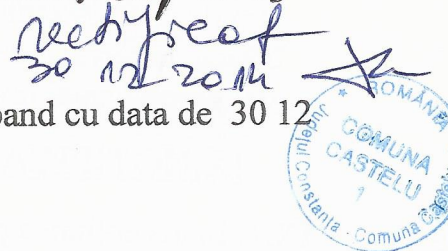 rectificat
30 12 2014
pand cu data de 30 12
ROMÂNIA
COMUNA
CASTELU
1
Judeţul Constanţa - Comuna Castelu